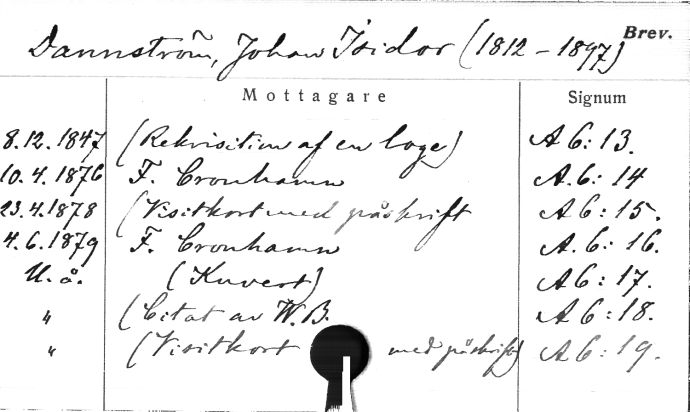 Brev.
Dannström, Johan Isidor (1812 – 1897)
Mottagare Signum
8.12.1847 (Rekvisition af en loge) A 6:13.
10.4.1876 F. Cronhamn A.6:14
23.4.1878 (Visitkort med påskrift A 6:15.
4.6.1879 F. Cronhamn A.6:16.
U.å. (Kuvert) A 6:17.
" (Citat av W.B. A 6:18.
" (Visitkort med påskrift) A 6:19.